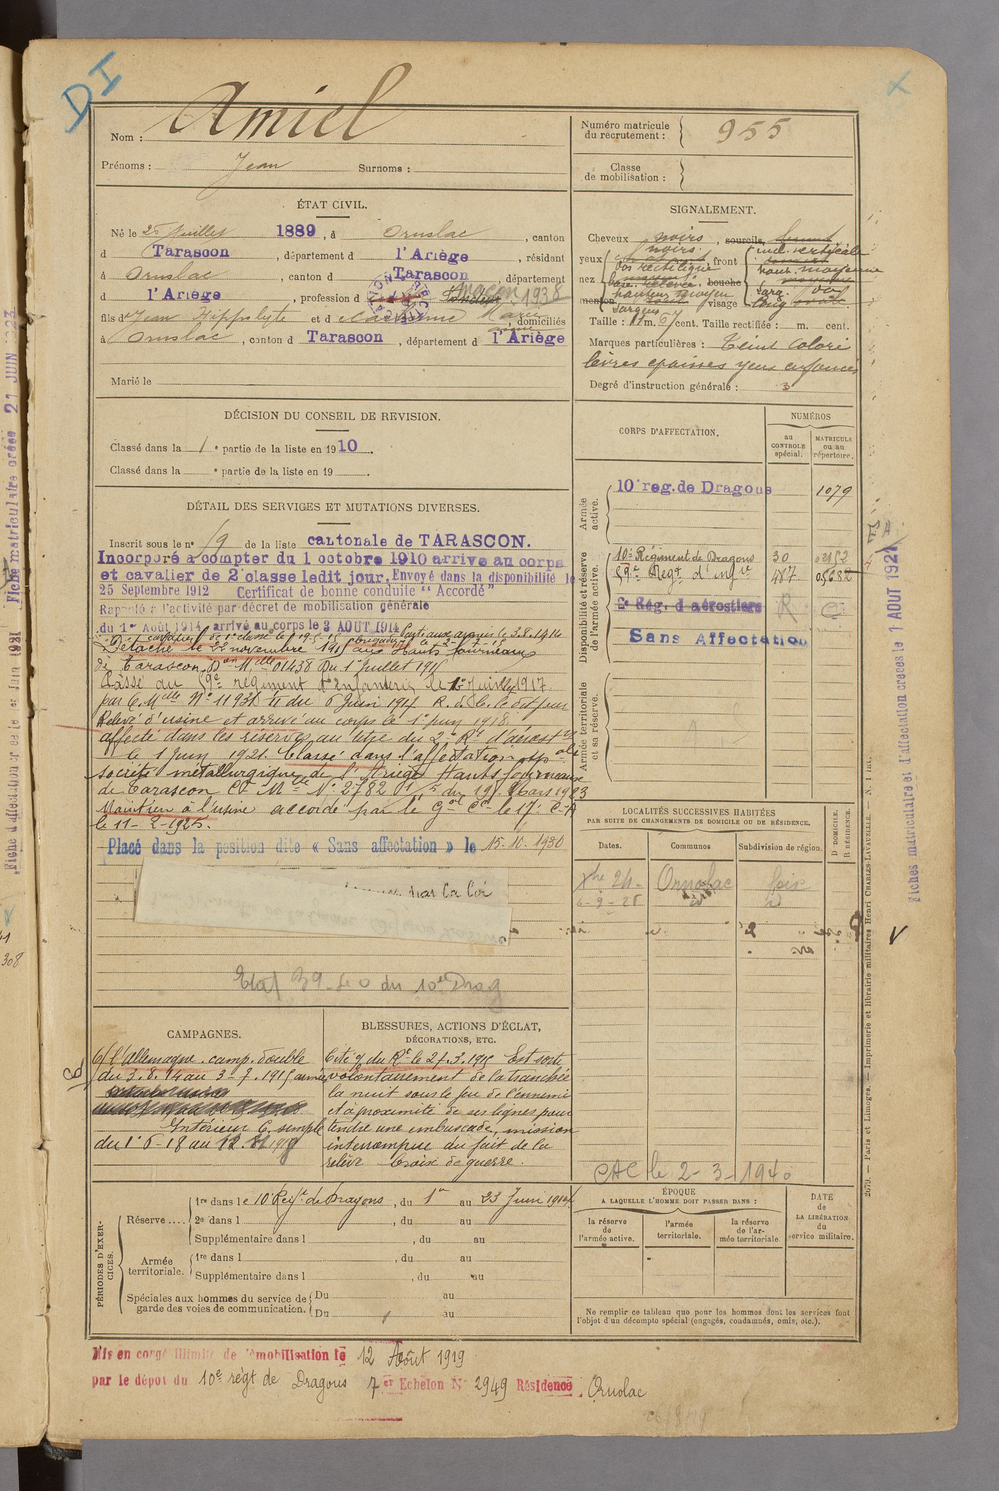 DI
Nom : Amiel
Prénoms : Jean Surnoms :
Numéro matricule du recrutement : 955
Classe de mobilisation :
ÉTAT CIVIL.
Né le 25 Juillet 1889, à Ornolac, canton
d Tarascon, département d l'Ariège, résidant
à Ornolac, canton d Tarascon département
d l'Ariège, profession d maçon 1938
fils d Jean Hippolyte et d Marie, domiciliés
à Ornolac, canton d Tarascon, département d l'Ariège
Marié le
SIGNALEMENT.
Cheveux noirs, sourcils
yeux noirs front incl. verticale
nez dos rectiligne haut. moyenne
base relevée, bouche
menton hauteur moyen visage long
Taille : 1 m. 67 cent. Taille rectifiée : m. cent.
Marques particulières : Teint coloré
lèvres épaisses yeux enfoncés
Degré d'instruction générale : 3
DÉCISION DU CONSEIL DE REVISION.
Classé dans la 1e partie de la liste en 1910.
Classé dans la e partie de la liste en 19
DÉTAIL DES SERVICES ET MUTATIONS DIVERSES.
Inscrit sous le n° 19 de la liste cantonale de TARASCON.
Incorporé a compter du 1 octobre 1910 arrive au corps
et cavalier de 2e classe ledit jour. Envoyé dans la disponibilité le
25 Septembre 1912 Certificat de bonne conduite "Accordé"
Rappelé à l'activité par décret de mobilisation générale
du 1er Août 1914 arrivé au corps le 3 AOUT 1914 Parti aux armées le 3.8.1914
Détaché le 22 novembre 1915 aux Hauts fourneaux
de Tarascon. Don Melle 01438 Du 1er Juillet 1915
Passé au 59e régiment d'Infanterie le 1er Juillet 1917
par C. Melle N° 11931 du 6 Juin 1917
Relevé d'usine et arrivé au corps le 1er Juin 1918.
affecté dans les réserves au titre du 2e Rt d'aérost
le 1 Juin 1921. Classé dans l'affectation sple
société métallurgique de l'Ariège Hauts fourneaux
de Tarascon Ct Mle N° 2782 du 19 Mars 1923
Maintien à l'usine accordé par le Gal Ct le 17e C.A
le 11-2-1925.
Placé dans la position dite « Sans affectation » le 15.10.1930
Etat 39-40 du 10e Drag
CORPS D'AFFECTATION.
NUMÉROS
au CONTROLE spécial.
MATRICULE ou au répertoire.
Armée active.
10e reg. de Dragons 1079
Disponibilité et réserve de l'armée active.
10e Régiment de Dragons 30 02152
59e Regt d'infie 487 05682
2e Rég. d'aérostiers R
Sans Affectation
Armée territoriale et sa réserve.
LOCALITÉS SUCCESSIVES HABITÉES
PAR SUITE DE CHANGEMENTS DE DOMICILE OU DE RÉSIDENCE.
Dates. Communes Subdivision de région.
D DOMICILE. R RÉSIDENCE.
Xbre 24 Ornolac foix
4-9-25 id id
CAMPAGNES.
C/ l'allemagne. camp. double
du 3.8.14 au 3-7.1915 armées
Intérieur C. simple
du 1er 6-18 au 12.11.1918
BLESSURES, ACTIONS D'ÉCLAT,
DÉCORATIONS, ETC.
Cité O. du Rt le 27.3.1915 Est sorti
volontairement de la tranchée
la nuit sous le feu de l'ennemi
et à proximité de ses lignes pour
tendre une embuscade, mission
interrompue du fait de la
relève Croix de guerre.
CAC le 2-3-1940
PÉRIODES D'EXERCICES.
Réserve .... 1re dans le 10 Regt de Dragons, du 1er au 23 Juin 1914
2e dans l , du au
Supplémentaire dans l , du au
Armée territoriale. 1re dans l , du au
Supplémentaire dans l , du au
Spéciales aux hommes du service de garde des voies de communication. Du au
Du au
ÉPOQUE
A LAQUELLE L'HOMME DOIT PASSER DANS :
la réserve de l'armée active.
l'armée territoriale.
la réserve de l'armée territoriale.
DATE DE LA LIBÉRATION du service militaire.
Ne remplir ce tableau que pour les hommes dont les services font
l'objet d'un décompte spécial (engagés, condamnés, omis, etc.).
Mis en congé illimité de démobilisation le 12 Août 1919
par le dépôt du 10e régt de Dragons 7er Echelon N° 2949 Résidence Ornolac
2679. — Paris et Limoges. — Imprimerie et librairie militaires Henri CHARLES-LAVAUZELLE.
Fiches matriculaire et d'affectation créées le 1 AOUT 1921
Fiche matriculaire créée 21 JUIN 1923
308